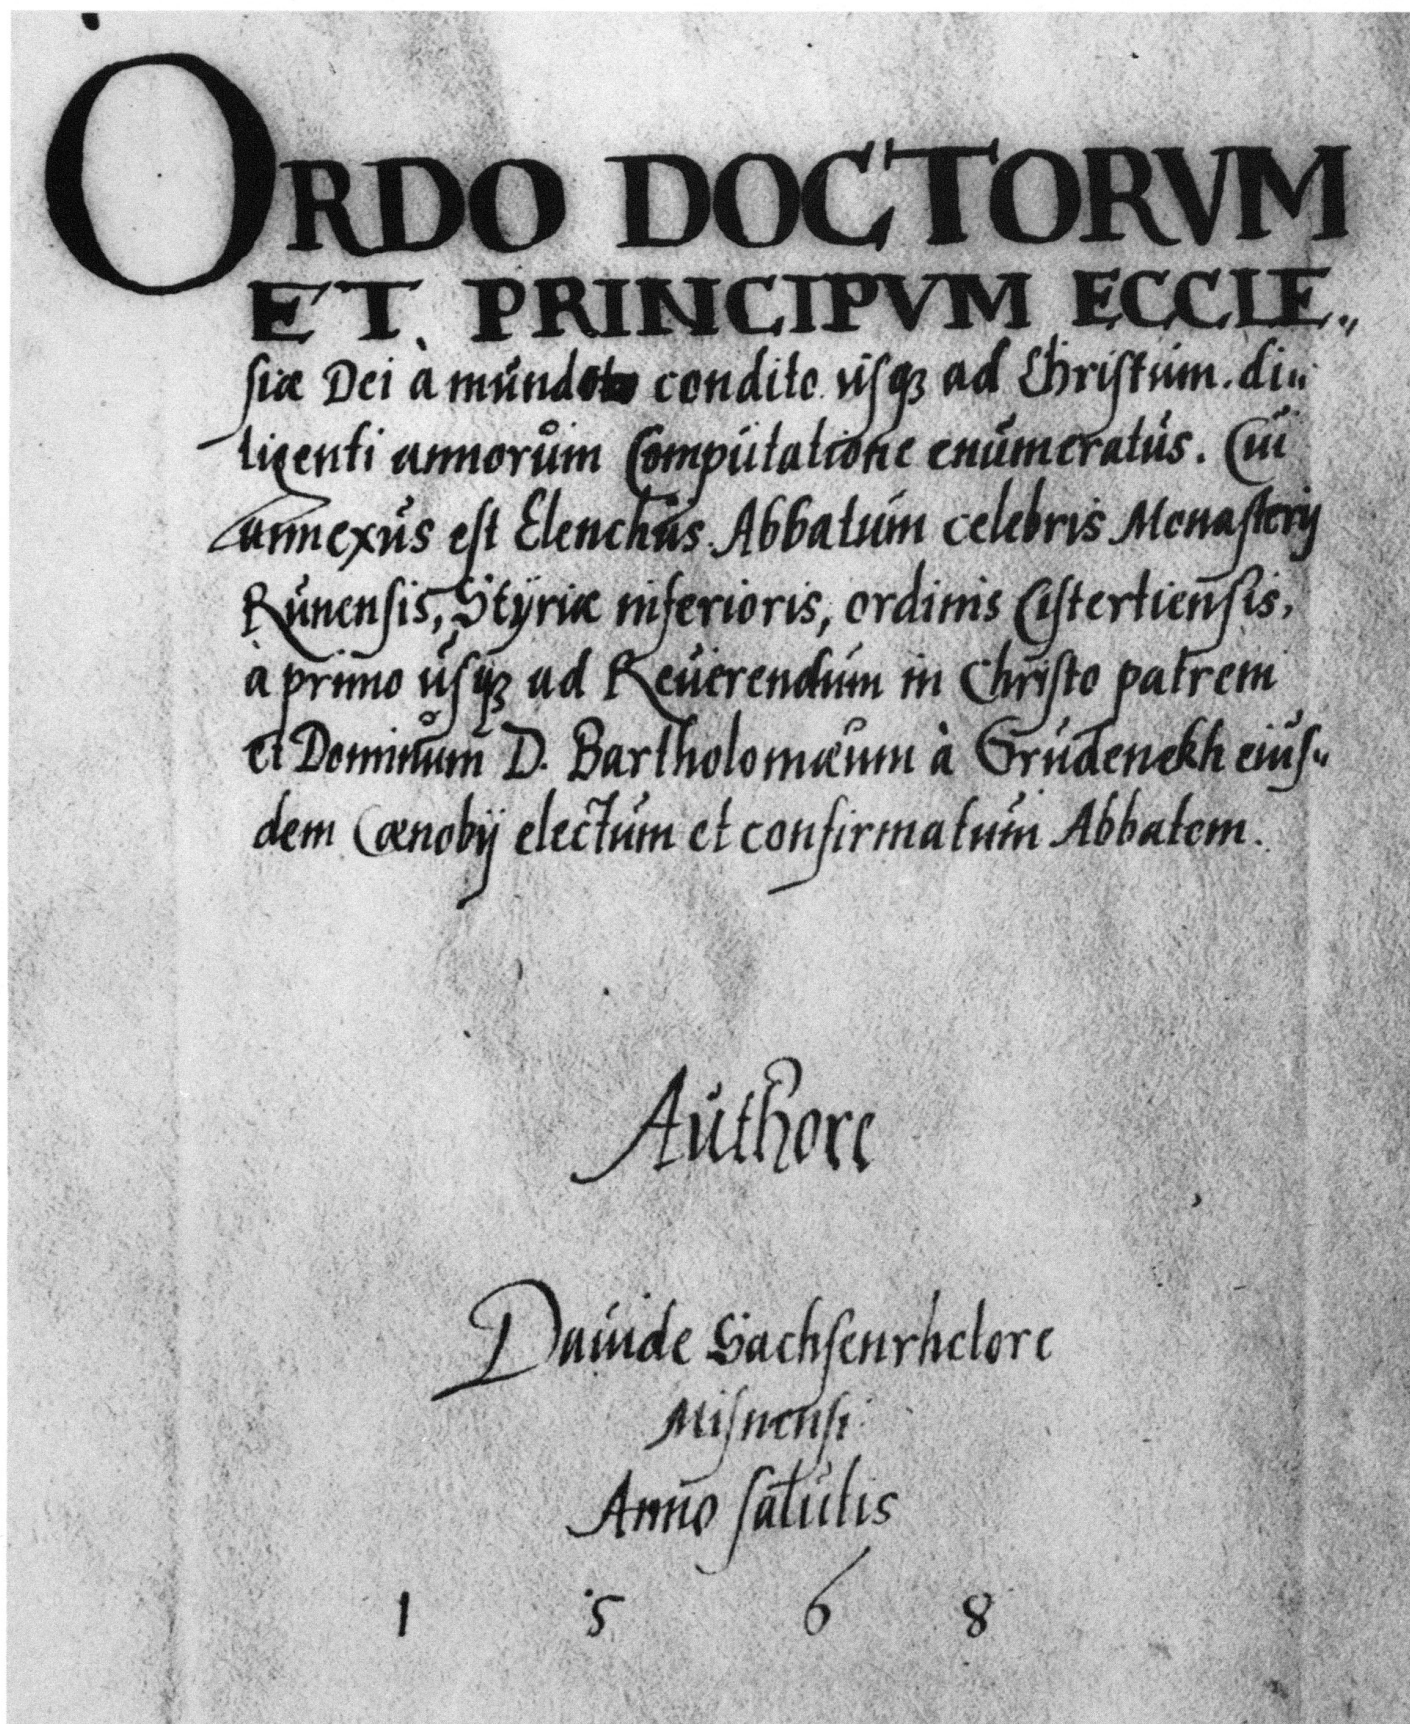 ORDO DOCTORVM
ET PRINCIPVM ECCLE„
siæ Dei à mundo condito usq₃ ad Christum. di„
ligenti annorum Computatione enumeratus. Cui
annexus est Elenchus Abbatum celebris Monasterij
Runensis, Styriæ inferioris, ordinis Cistertiensis,
à primo usq₃ ad Reuerendum in Christo patrem
et Dominum D. Bartholomæum à Grudenekh eius„
dem Cœnobij electum et confirmatum Abbatem.
Authore
Dauide Sachsenrhetore
Misnensi
Anno salutis
1 5 6 8